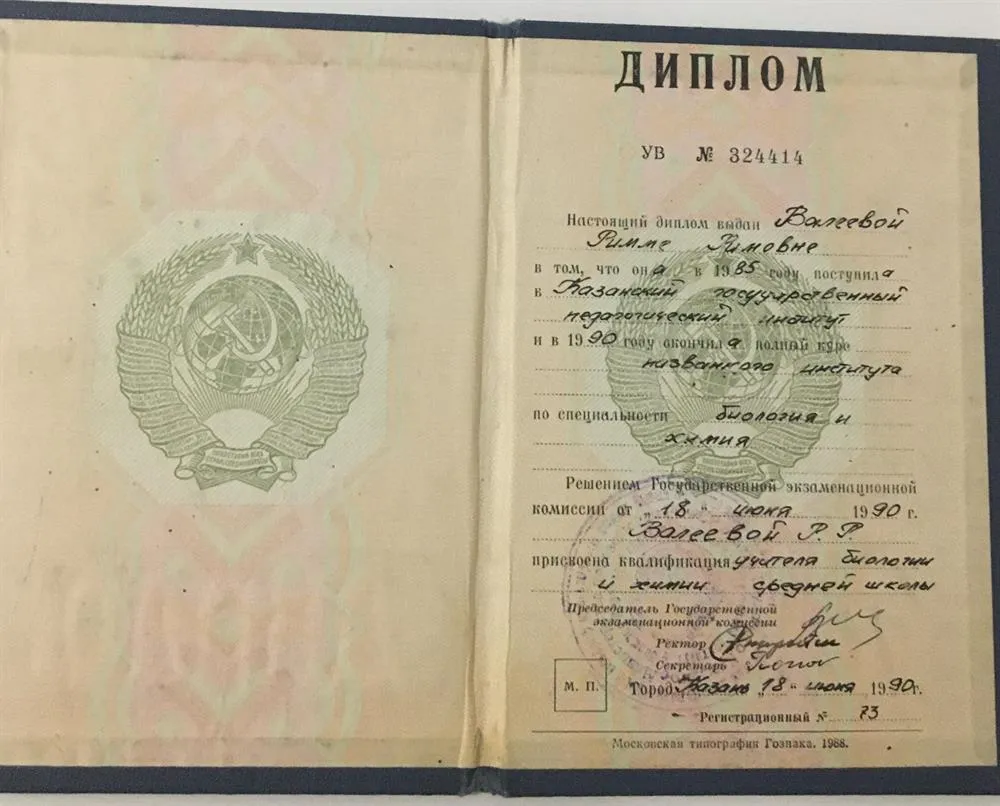 ДИПЛОМ
УВ № 324414
Настоящий диплом выдан Валеевой
Римме Римовне
в том, что она в 1985 году поступила
в Казанский государственный
педагогический институт
и в 1990 году окончила полный курс
названного института
по специальности биология и
химия
Решением Государственной экзаменационной
комиссии от „18“ июня 1990 г.
Валеевой Р. Р.
присвоена квалификация учителя биологии
и химии средней школы
Председатель Государственной
экзаменационной комиссии
Ректор
Секретарь
М. П. Город Казань „18“ июня 1990 г.
Регистрационный № 73
Московская типография Гознака. 1988.